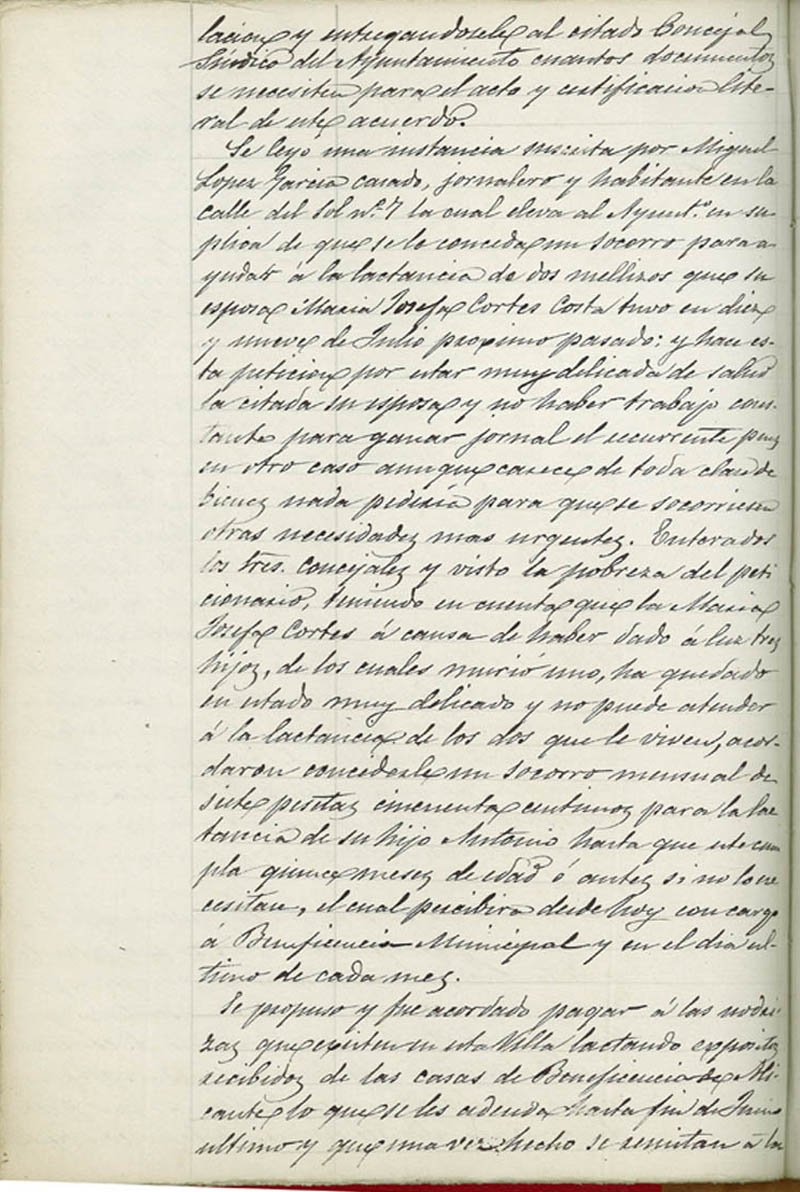 lacion y entregandosele al citado Concejal
Síndico del Ayuntamiento cuantos documentos
se necesiten para el acto y certificacion lite-
ral de este acuerdo.
Se leyó una instancia suscrita por Miguel
Lopez Garcia casado, jornalero y habitante en la
calle del Sol nº 7 la cual eleva al Ayuntº en su
plica de que se le conceda un socorro para a
yudar á la lactancia de dos mellizos que su
esposa Maria Josefa Cortes Costa tuvo en diez
y nueve de Julio proximo pasado: y hace es-
ta peticion por estar muy delicada de salud
la citada su esposa y no haber trabajo cons-
tante para ganar jornal el recurrente pues
en otro caso aunque carece de toda clase de
bienes nada pediria para que se socorriesen
otras necesidades mas urgentes. Enterados
los tres. concejales y visto la pobreza del peti
cionario, teniendo en cuenta que la Maria
Josefa Cortes á causa de haber dado á luz tres
hijos, de los cuales murió uno, ha quedado
en estado muy delicado y no puede atender
á la lactancia de los dos que le viven, acor-
daron concederle un socorro mensual de
siete pesetas cincuenta centimos para la lac
tancia de su hijo Antonio hasta que este cum
pla quince meses de edad ó antes si no lo ne
cesitare, el cual percibira desde hoy con cargo
á Beneficencia Municipal y en el dia ul-
timo de cada mes.
Se propuso y fue acordado pagar á las nodri-
zas que existen en esta Villa lactando expositos
recibidos de las casas de Beneficencia de Ali-
cante lo que se les adeuda hasta fin de Junio
ultimo y que una vez hecho se remitan á la